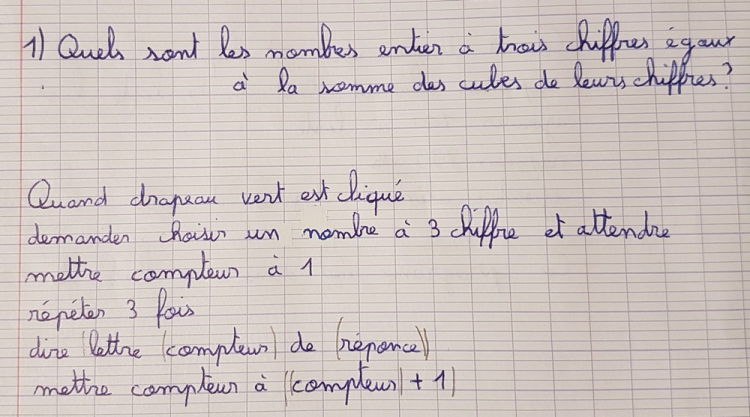 1) Quels sont les nombres entier à trois chiffres égaux
à la somme des cubes de leurs chiffres?
Quand drapeau vert est cliqué
demander choisir un nombre à 3 chiffre et attendre
mettre compteur à 1
répéter 3 fois
dire (lettre (compteur) de (réponce))
mettre compteur à ((compteur) + 1)